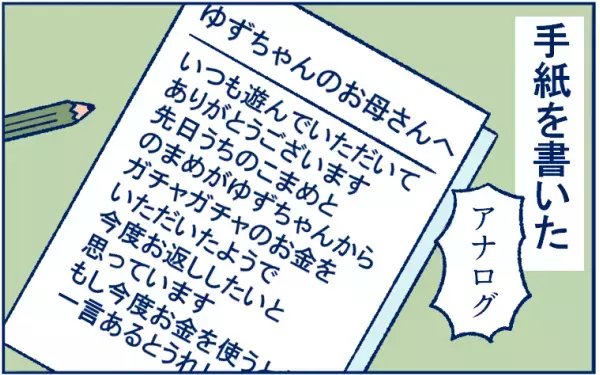 手紙を書いた
アナログ
ゆずちゃんのお母さんへ
いつも遊んでいただいて
ありがとうございます
先日うちのこまめと
のまめがゆずちゃんから
ガチャガチャのお金を
いただいたようで
今度お返ししたいと
思っています
もし今度お金を使うと
一言あるとうれ